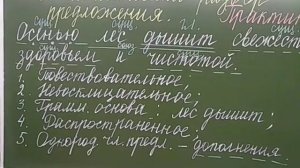 предложения. Практик
сущ. сущ. гл.
Осенью лес дышит свежест
сущ. союз
здоровьем и чистотой.
1. Повествовательное
2. Невосклицательное;
3. Грамм. основа: лес дышит;
4. Распространённое;
5. Однород. чл. предл. - дополнения